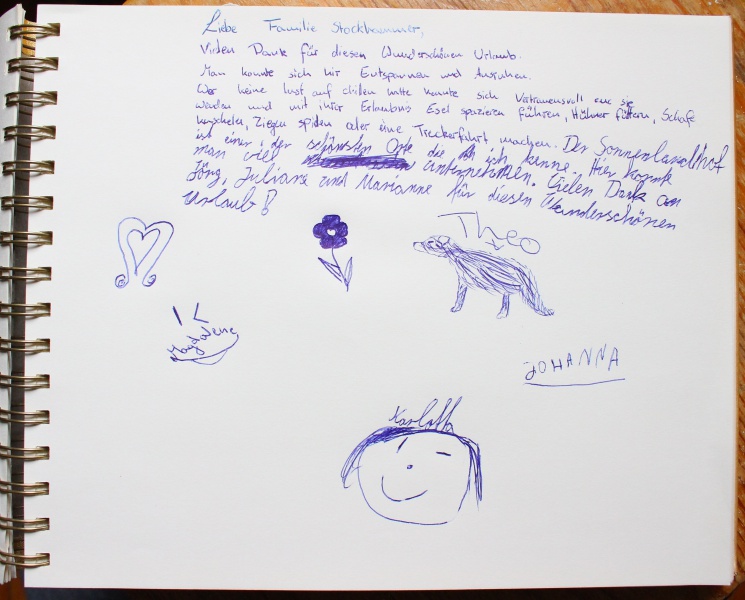 Liebe Familie Stockhammer,
Vielen Dank für diesen Wunderschönen Urlaub.
Man konnte sich hir Entspannen und Ausruhen.
Wer keine lust auf chillen hatte konnte sich Vertrauensvoll an sie
wenden und mit ihrer Erlaubnis Esel spazieren führen, Hühner füttern, Schafe
kuscheln, Ziegen spielen oder eine Treckerfahrt machen. Der Sonnenlandhof
ist einer der schönsten Orte die ich kenne. Hier konnte
man viel unternehmen. Vielen Dank an
Jörg, Juliane und Marianne für diesen Wunderschönen
Urlaub!
Theo
Magdalena
JOHANNA
Karlotta